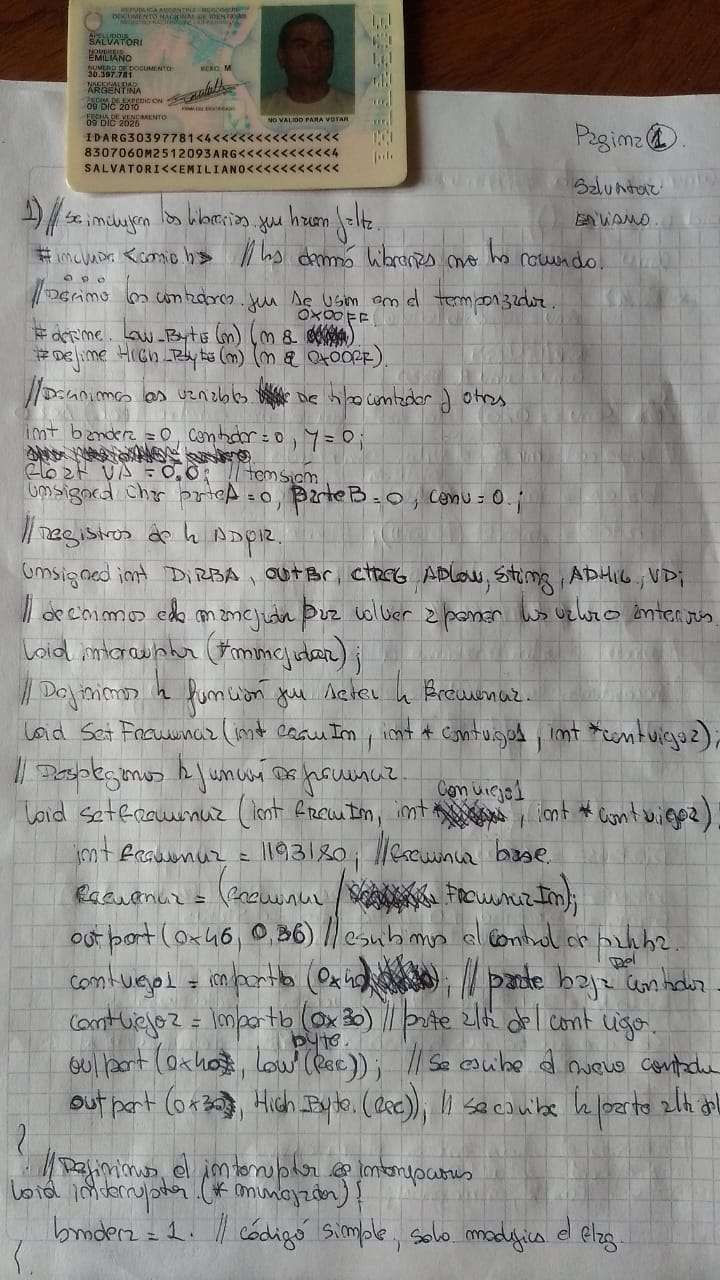 REPUBLICA ARGENTINA - MERCOSUR
DOCUMENTO NACIONAL DE IDENTIDAD
APELLIDO/S
SALVATORI
NOMBRE/S
EMILIANO
NUMERO DE DOCUMENTO SEXO M
30.397.781
NACIONALIDAD
ARGENTINA
FECHA DE EXPEDICION
09 DIC 2010
FECHA DE VENCIMIENTO
09 DIC 2025
NO VALIDO PARA VOTAR
IDARG30397781<4<<<<<<<<<<<<<<<
8307060M2512093ARG<<<<<<<<<<<4
SALVATORI<<EMILIANO<<<<<<<<<<<
Pagina 1.
Salvatori
Emiliano.
1) // se incluyen las librerias que hacen falta.
#include <conio.h> // las demás librerias no las recuerdo.
// Defino los contadores que se usan en el temporizador.
#define Low_Byte(n) (n & 0x00FF)
#Define High_Byte(n) (n & 0x00FF).
// Definimos las variables de tipo contador y otras
int bandera = 0, contador = 0, Y = 0;
float VA = 0.0; // tensión
unsigned char parteA = 0, parteB = 0, conv = 0.;
// Registros de la
unsigned int DirBA, outBr, CTREG, ADLow, String, ADHIG, VD;
// definimos el manejador para volver a poner los valores
void interrupter (*manejador);
// Definimos la función que setea la Frecuencia.
void SetFrecuencia (int FrecuIn, int * contviejo1, int *contviejo2);
// Desplegamos la función De frecuencia.
void setFrecuencia (int FrecuIn, int * Conviejo1, int * contviejo2)
int Frecuencia = 1193180; // Frecuencia base.
Frecuencia = (Frecuencia / FrecuenciaIn);
outport (0x46, 0,36) // escribimos el control de palabra.
contviejo1 = importb (0x40); // parte baja Del contador.
contviejo2 = importb (0x30) // parte alta del cont viejo.
outport (0x40, Low byte (Rec)); // Se escribe el nuevo contador
outport (0x30, High_Byte.(Rec)); // se escribe la parte alta del
}
// Definimos el interrupter de interrupciones
void interrupter.(* manejador) {
bandera = 1. // código simple, solo modifica el flag.
{.